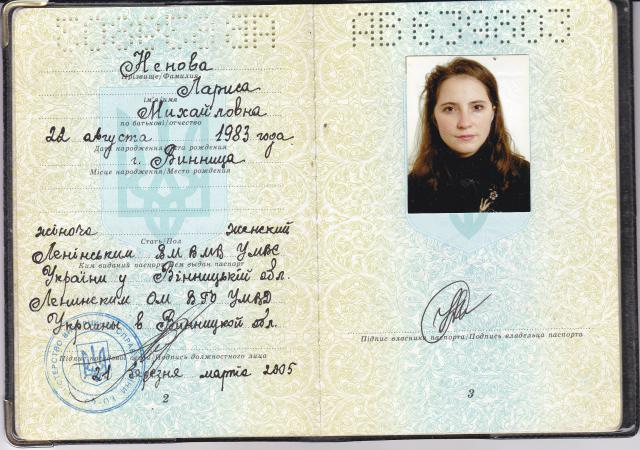 Ненова
Прізвище/Фамилия
Лариса
ім'я/имя
Михайловна
по батькові/отчество
22 августа 1983 года
Дата народження/Дата рождения
г. Винница
Місце народження/Место рождения
жіноча женский
Стать/Пол
Ленінським ВМ ВМВ УМВС
Ким виданий паспорт/Кем выдан паспорт
України у Вінницькій обл.
Ленинским ОМ ВГО УМВД
Украины в Винницкой обл.
Підпис посадової особи/Подпись должностного лица
21 березня марта 2005
2
АВ 639803
Підпис власника паспорта/Подпись владельца паспорта
3